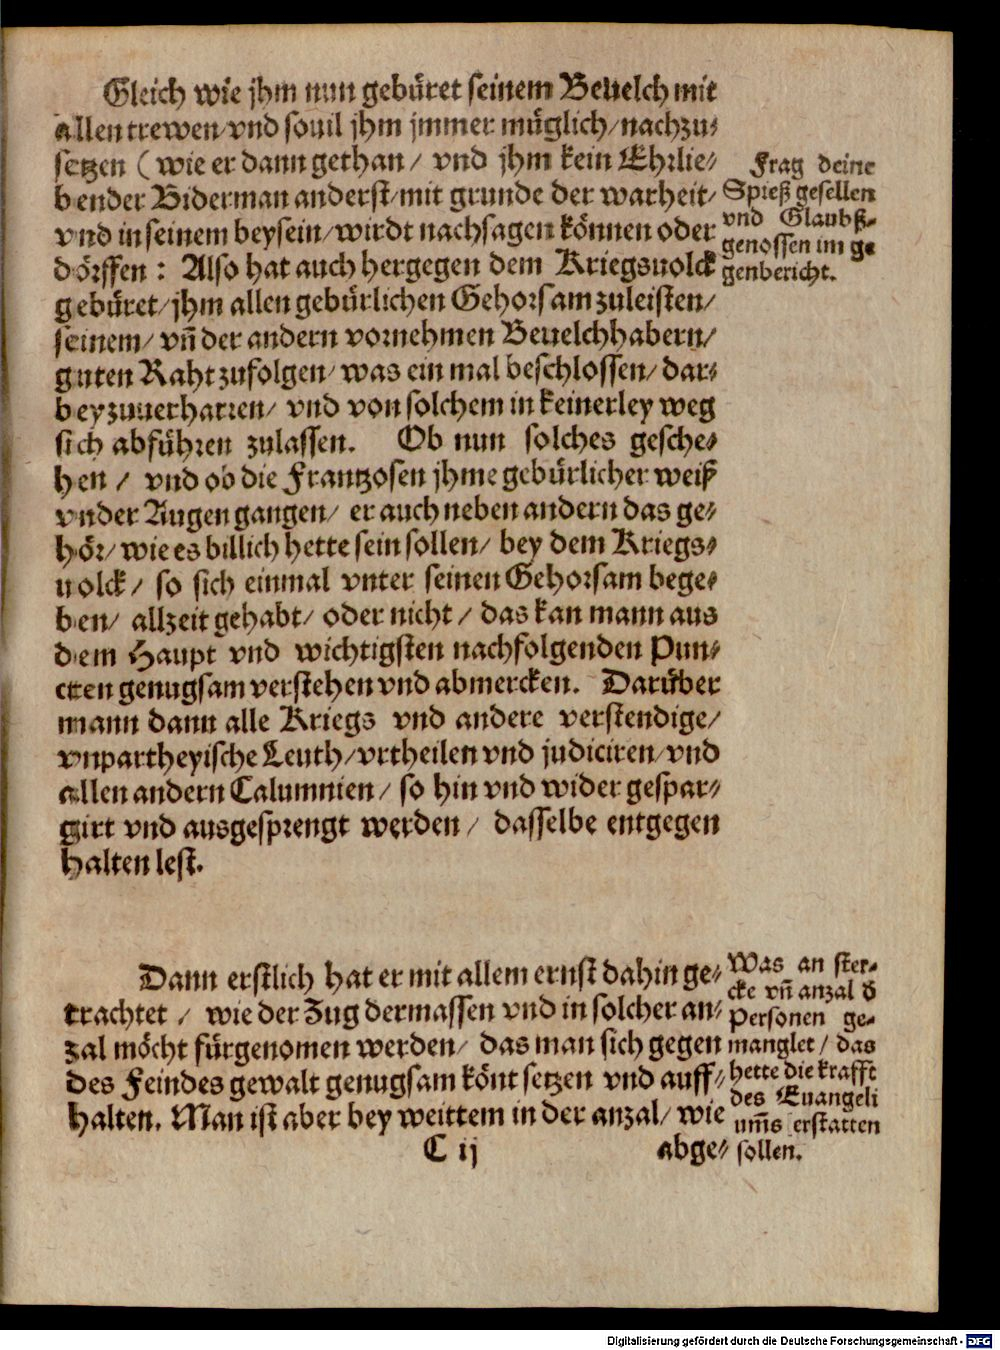 Gleich wie jhm nun gebüret seinem Beuelch mit
allen trewen/vnd souil jhm jmmer müglich/nachzu⸗
setzen (wie er dann gethan/ vnd jhm kein Ehrlie⸗
bender Biderman anderst/mit grunde der warheit/
vnd in seinem beysein/wirdt nachsagen können oder
dörffen: Also hat auch hergegen dem Kriegsuolck
gebüret/jhm allen gebürlichen Gehorsam zuleisten/
seinem/ vñ der andern vornehmen Beuelchhabern/
guten Raht zufolgen/ was ein mal beschlossen/ dar⸗
bey zuuerharren/ vnd von solchem in keinerley weg
sich abführen zulassen. Ob nun solches gesche⸗
hen/ vnd ob die Frantzosen jhme gebürlicher weiß
vnder Augen gangen/ er auch neben andern das ge⸗
hör/ wie es billich hette sein sollen/ bey dem Kriegs⸗
uolck/ so sich einmal vnter seinen Gehorsam bege⸗
ben/ allzeit gehabt/ oder nicht/ das kan mann aus
dem Haupt vnd wichtigsten nachfolgenden Pun⸗
cten genugsam verstehen vnd abmercken. Darüber
mann dann alle Kriegs vnd andere verstendige/
vnpartheyische Leuth/vrtheilen vnd judiciren/vnd
allen andern Calumnien/ so hin vnd wider gespar⸗
girt vnd ausgesprengt werden/ dasselbe entgegen
halten lest.
Frag deine
Spieß gesellen
vnd Glaubß⸗
genossen im ge
genbericht.
Dann erstlich hat er mit allem ernst dahin ge⸗
trachtet/ wie der Zug dermassen vnd in solcher an⸗
zal möcht fürgenomen werden/ das man sich gegen
des Feindes gewalt genugsam könt setzen vnd auff⸗
halten. Man ist aber bey weittem in der anzal/ wie
Was an ster⸗
cke vñ anzal d
Personen ge⸗
manglet/ das
hette die krafft
des Euangeli
um̃s erstatten
sollen.
C ij
abge⸗
Digitalisierung gefördert durch die Deutsche Forschungsgemeinschaft - DFG